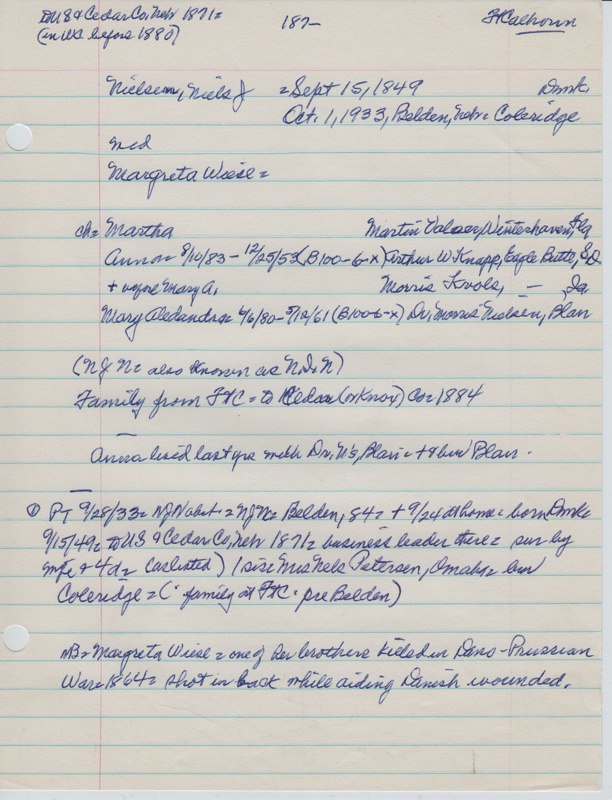 to US & Cedar Co, Nebr 1871= 187- Ft Calhoun
(in US before 1880)
Nielsen, Niels J = Sept 15, 1849 Dmk,
Oct. 1, 1933, Belden, Nebr = Coleridge
md
Margreta Wiese =
ch= Martha Martin Valaer, Winterhaven, Fla
Anna = 8/10/83 - 12/25/53 (B100-6-x) Arthur W Knapp, Eagle Butte, S.D.
+ before Mary A. Morris Kvols, — Ia
Mary Alexandra = 6/6/80 - 5/12/61 (B100-6-x) Dr. Morris Nielsen, Blair
(NJN= also known as N.J.N)
Family from FtC = to Cedar (or Knox) Co = 1884
Anna lived last yrs with Dr. N's, Blair = + + bur Blair.
① PT 9/28/33 = NJN obit = NJN= Belden, 84 = + 9/24 at home = born Dmk
9/15/49 = to US & Cedar Co, Nebr 1871 = business leader there = sur by
wife & 4d = (as listed) / sis = Mrs Nels Petersen, Omaha = bur
Coleridge = (: family at FtC = pre Belden)
NB = Margreta Wiese = one of her brothers killed in Dano-Prussian
War = 1864 = shot in back while aiding Danish wounded.